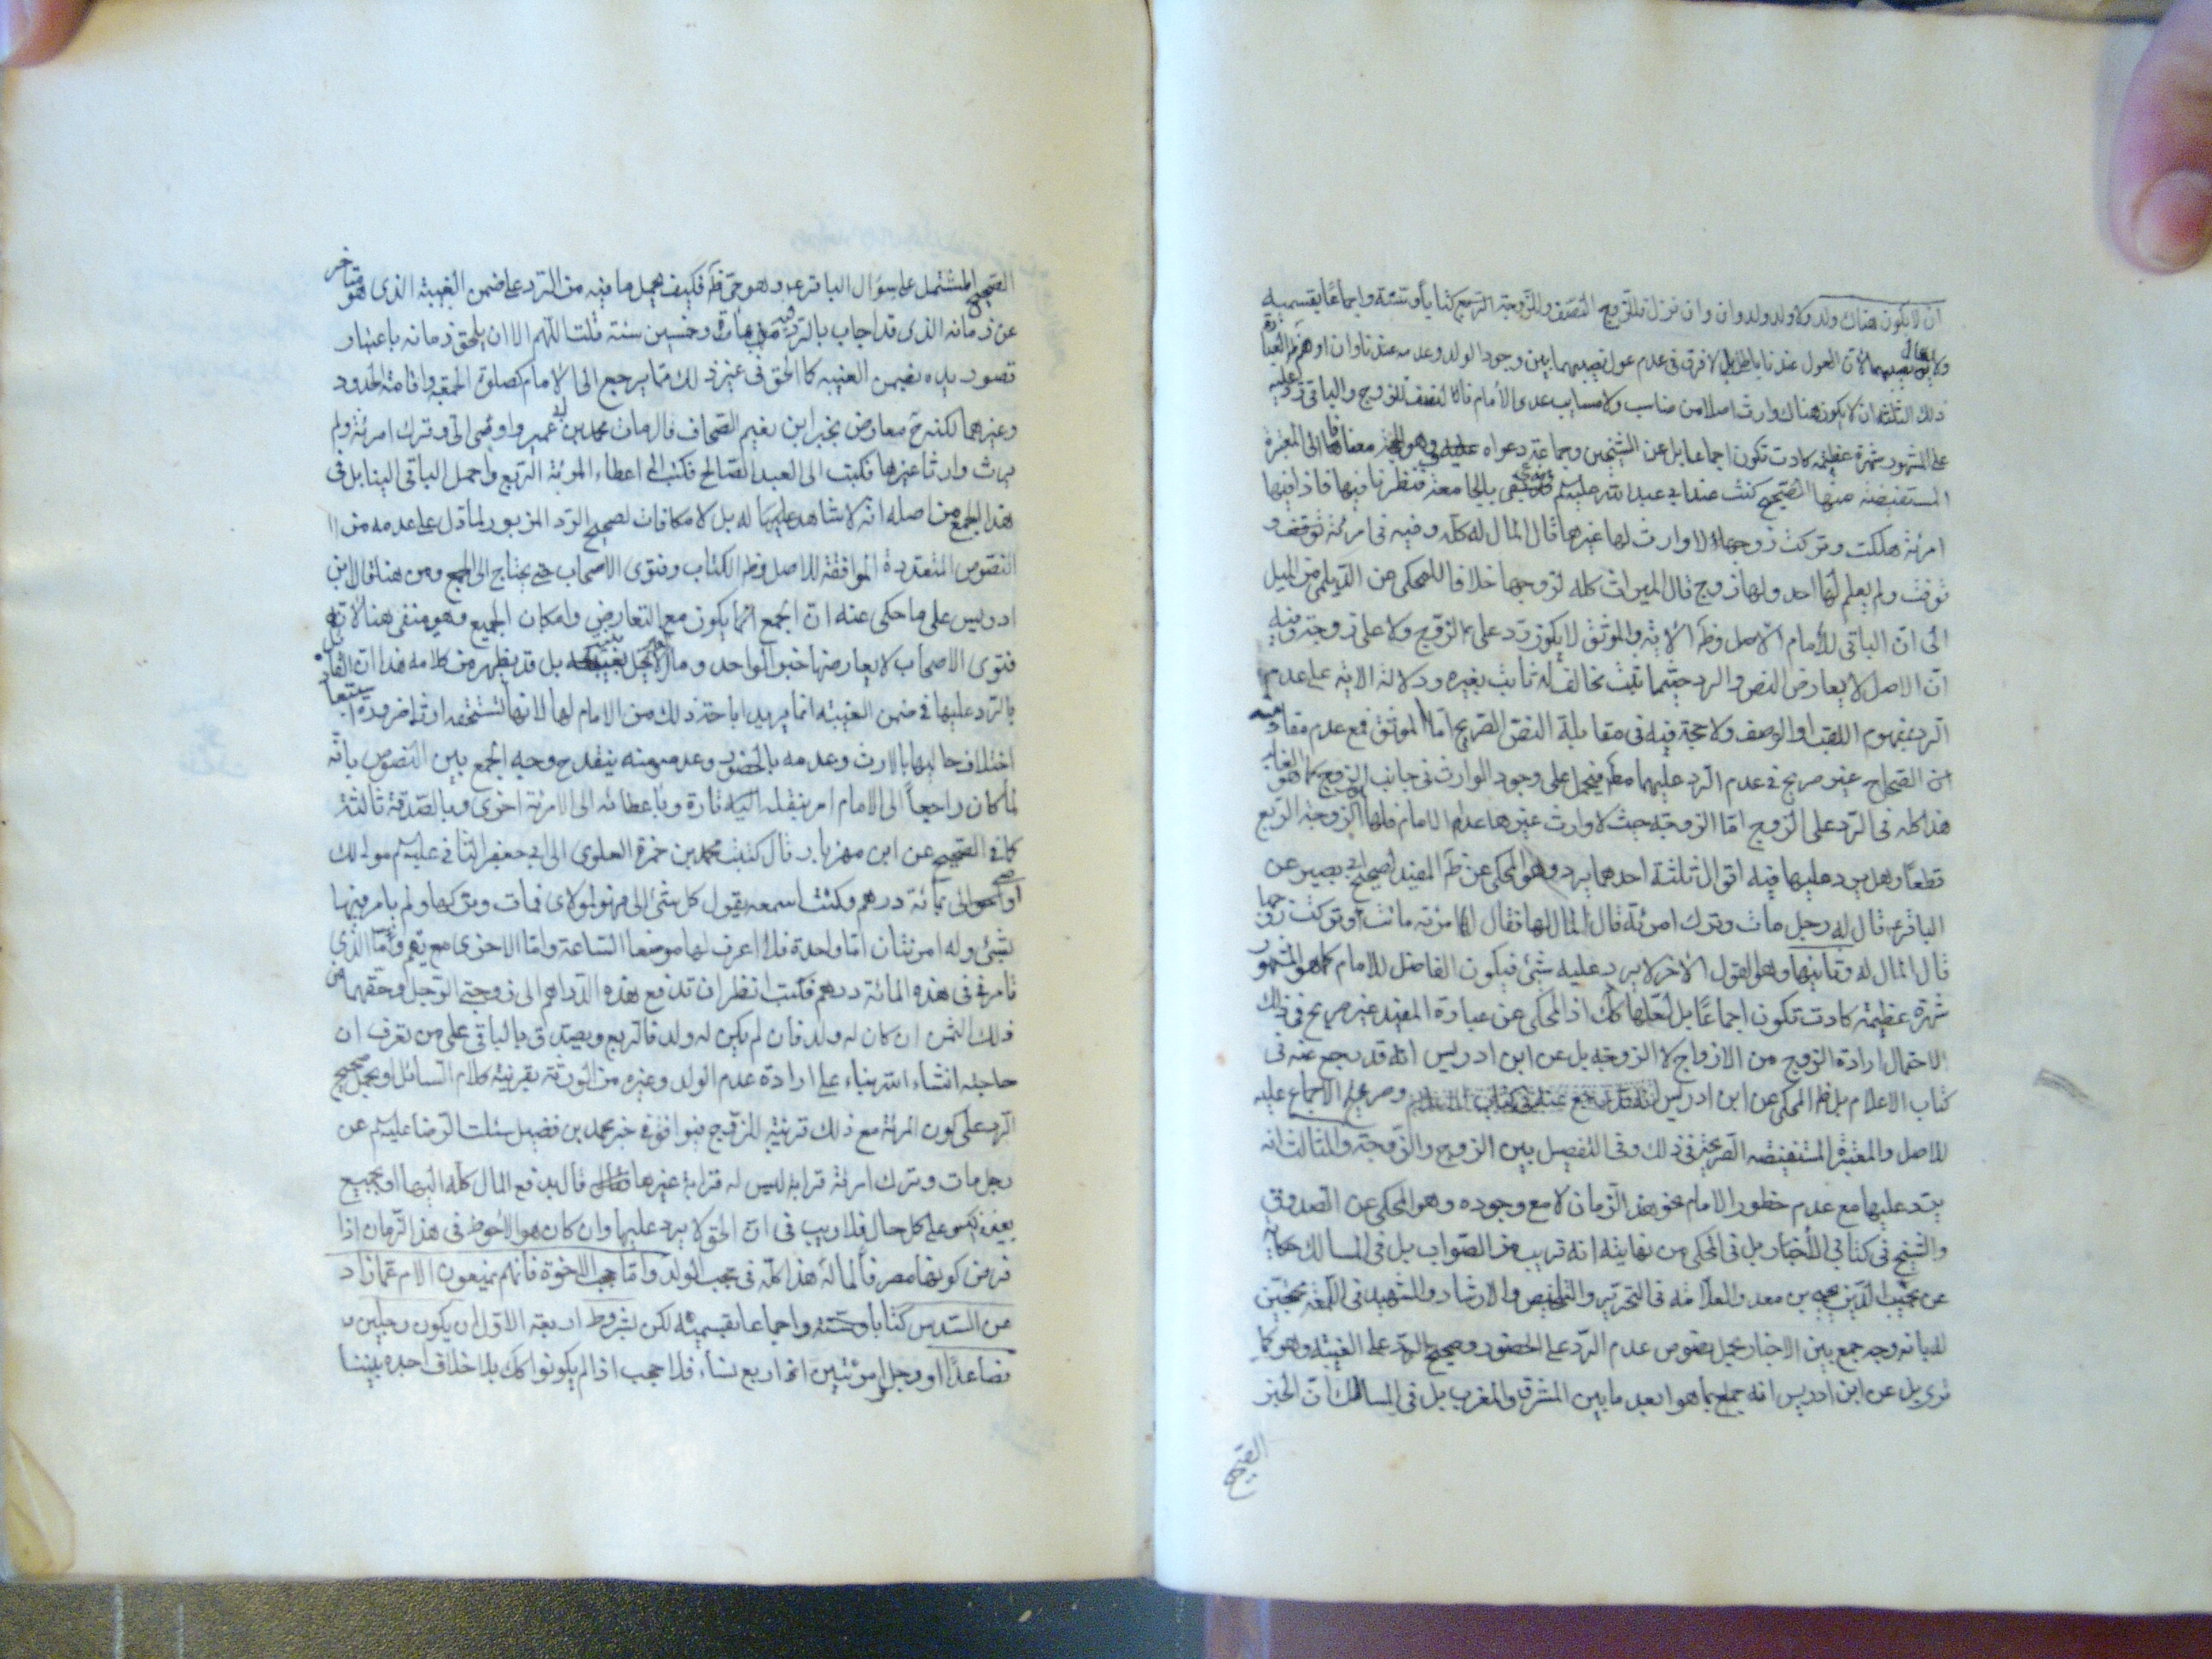 ان لا يكون هناك ولد ولا ولد ولد وان نزل فللزوج النصف وللزوجة الربع كتابا وسنة واجماعا بقسميه
لان العول عندنا باطل بل لا فرق في عدم عول نصيبهما بين وجود الولد وعدمه عندنا وان اوهم العبارة
ذلك الثالثة ان لا يكون هناك وارث اصلا من مناسب ولا مسابب عدى الامام فالنصف للزوج والباقي رد عليه
على المشهور شهرة عظيمة كادت تكون اجماعا بل عن الشيخين وجماعة دعواه عليه وهو الحجة مضافا الى المعتبرة
المستفيضة منها الصحيح كنت عند ابي عبد الله عليه السلم فدعى بالجامعة فنظرنا فيها فاذا فيها
امرئة هلكت وتركت زوجها لا وارث لها غيرها قال المال له كله وفيه في امرئة توقفت و
توفت ولم يعلم لها احد ولها زوج قال الميراث كله لزوجها خلافا للمحكى عن الديلمي من الميل
الى ان الباقي للامام للاصل وظ الاية والموثق لا يكون رد على الزوج ولا على زوجة وفيه
ان الاصل لا يعارض النص والرد حيثما ثبت مخالف له ثابت بغيره ودلالة الاية على عدم
الرد بمفهوم اللقب او الوصف ولا حجة فيه في مقابلة النص الصريح اما الموثق فمع عدم مقاومته
من الصحاح غير صريح في عدم الرد عليهما مط فيحمل على وجود الوارث في جانب الزوج كما هو الغالب
هذا كله في الرد على الزوج اما الزوجة حيث لا وارث غيرها عدى الامام فلها الربع
قطعا وهل يرد عليها فيه اقوال ثلثة احدها يرد وهو المحكى عن ظ المفيد لصحيح ابي بصير عن
الباقر ع قال له رجل مات وترك امرئة قال المال لها فقال امرئة ماتت وتركت زوجها
قال المال له وثانيها وهو القول الاخر لا يرد عليه شئ فيكون الفاضل للامام كما هو المشهور
شهرة عظيمة كادت تكون اجماعا بل لعلها كك اذ المحكى عن عبارة المفيد غير صريح في ذلك
لاحتمال ارادة الزوج من الازواج لا الزوجة بل عن ابن ادريس انه قد رجع عنه في
كتاب الاعلام بل ظ المحكى عن ابن ادريس وصريح الاجماع عليه
للاصل والمعتبرة المستفيضة الصريحة في ذلك وفي التفصيل بين الزوج والزوجة والثالث انه
يرد عليها مع عدم حظور الامام نحو هذا الزمان لا مع وجوده وهو المحكى عن الصدوق
والشيخ في كتابي الاخبار بل في المحكى من نهايته انه قريب من الصواب بل في المسالك حكاية
عن نجيب الدين بن معد والعلامة في التحرير والتلخيص والارشاد والشهيد في اللمعة محتجين
له بانه وجه جمع بين الاخبار بحمل نصوص عدم الرد على الحضور وصحيح الرد على الغيبة وهو كما
ترى بل عن ابن ادريس انه جمع بما هو ابعد ما بين المشرق والمغرب بل في المسالك ان الخبر
الصحيح
الصحيح المشتمل على سؤال الباقر ع وهو حي ظ فكيف يحمل ما فيه من الرد على ضمن الغيبة الذي هو متاخر
عن زمانه الذي قد اجاب بالرد فيه من مائة وخمسين سنة قلت اللهم الا ان يلحق زمانه باعتبار
قصور يده بضمن الغيبة كالحق في غير ذلك مما يرجع الى الامام كصلوة الجمعة واقامة الحدود
وغيرهما لكنه ح معارض بخبر ابن نعيم الصحاف قال مات محمد بن ابي عمير واوصى الي وترك امرئة ولم
يرث وارثا غيرها فكتبت الى العبد الصالح فكتب الي اعطاء المرئة الربع واحمل الباقي الينا بل في
هذا الجمع من اصله انه لا شاهد عليهما له بل لا مكافات لصحيح الرد المزبور لما دل على عدمه من ا
النصوص المتعددة الموافقة للاصل وظ الكتاب وفتوى الاصحاب حتى يحتاج الى الجمع ومن هنا قال ابن
ادريس على ما حكى عنه ان الجمع انما يكون مع التعارض وامكان الجميع وهو منفى هنا لان
فتوى الاصحاب لا يعارضها خبر الواحد بل قد يظهر من كلامه هذا ان القائل
بالرد عليها في ضمن الغيبة انما يريد اباحة ذلك من الامام لها لانها تستحقه ارثا ضرورة استبعاد
اختلاف حاليها بالارث وعدمه بالحضور وعدمه ومنه ينقدح وجه الجمع بين النصوص بانه
لما كان راجعا الى الامام امر بنقله اليه تارة وباعطائه الى الامرئة اخرى وبالصدقة ثالثة
كما في الصحيح عن ابن مهزيار قال كتبت محمد بن حمزة العلوي الى ابي جعفر الثاني عليه السلم مولى لك
اوصى الى بمائة درهم وكنت اسمعه يقول كل شئ لي فهو لمولاى فمات وتركها ولم يامر فيها
بشئ وله امرئتان اما واحدة فلا اعرف لها موضعا الساعة واما الاخرى مع بقم وما الذي
تامرني في هذه المائة درهم فكتب انظر ان تدفع هذه الدراهم الى زوجتي الرجل وحقهما من
ذلك الثمن ان كان له ولد فان لم يكن له ولد فالربع ويصدق بالباقي على من تعرف ان
حاجة انشاء الله بناء على ارادة عدم الولد وغيره من الورثة بقرينة كلام السائل او يحمل صحيح
الرد على كون المرئة مع ذلك قريبة للزوج فيوافق خبر محمد بن فضيل سئلت الرضا عليه السلم عن
رجل مات وترك امرئة قرابة ليس له قرابة غيرها قال يدفع المال كله اليها او بجميع
على كل حال فلا ريب في ان الحق لا يرد عليها وان كان هو الاحوط في هذا الزمان اذا
فرض كونها مصرفا لماله هذا كله في حجب الولد واما حجب الاخوة فانهم يمنعون الام عما زاد
عن السدس كتابا وسنة واجماعا بقسميه لكن بشروط اربعة الاول ان يكون رجلين
فصاعدا او رجل وامرئتين او اربع نساء فلا حجب اذا لم يكونوا كك بلا خلاف اجده بيننا